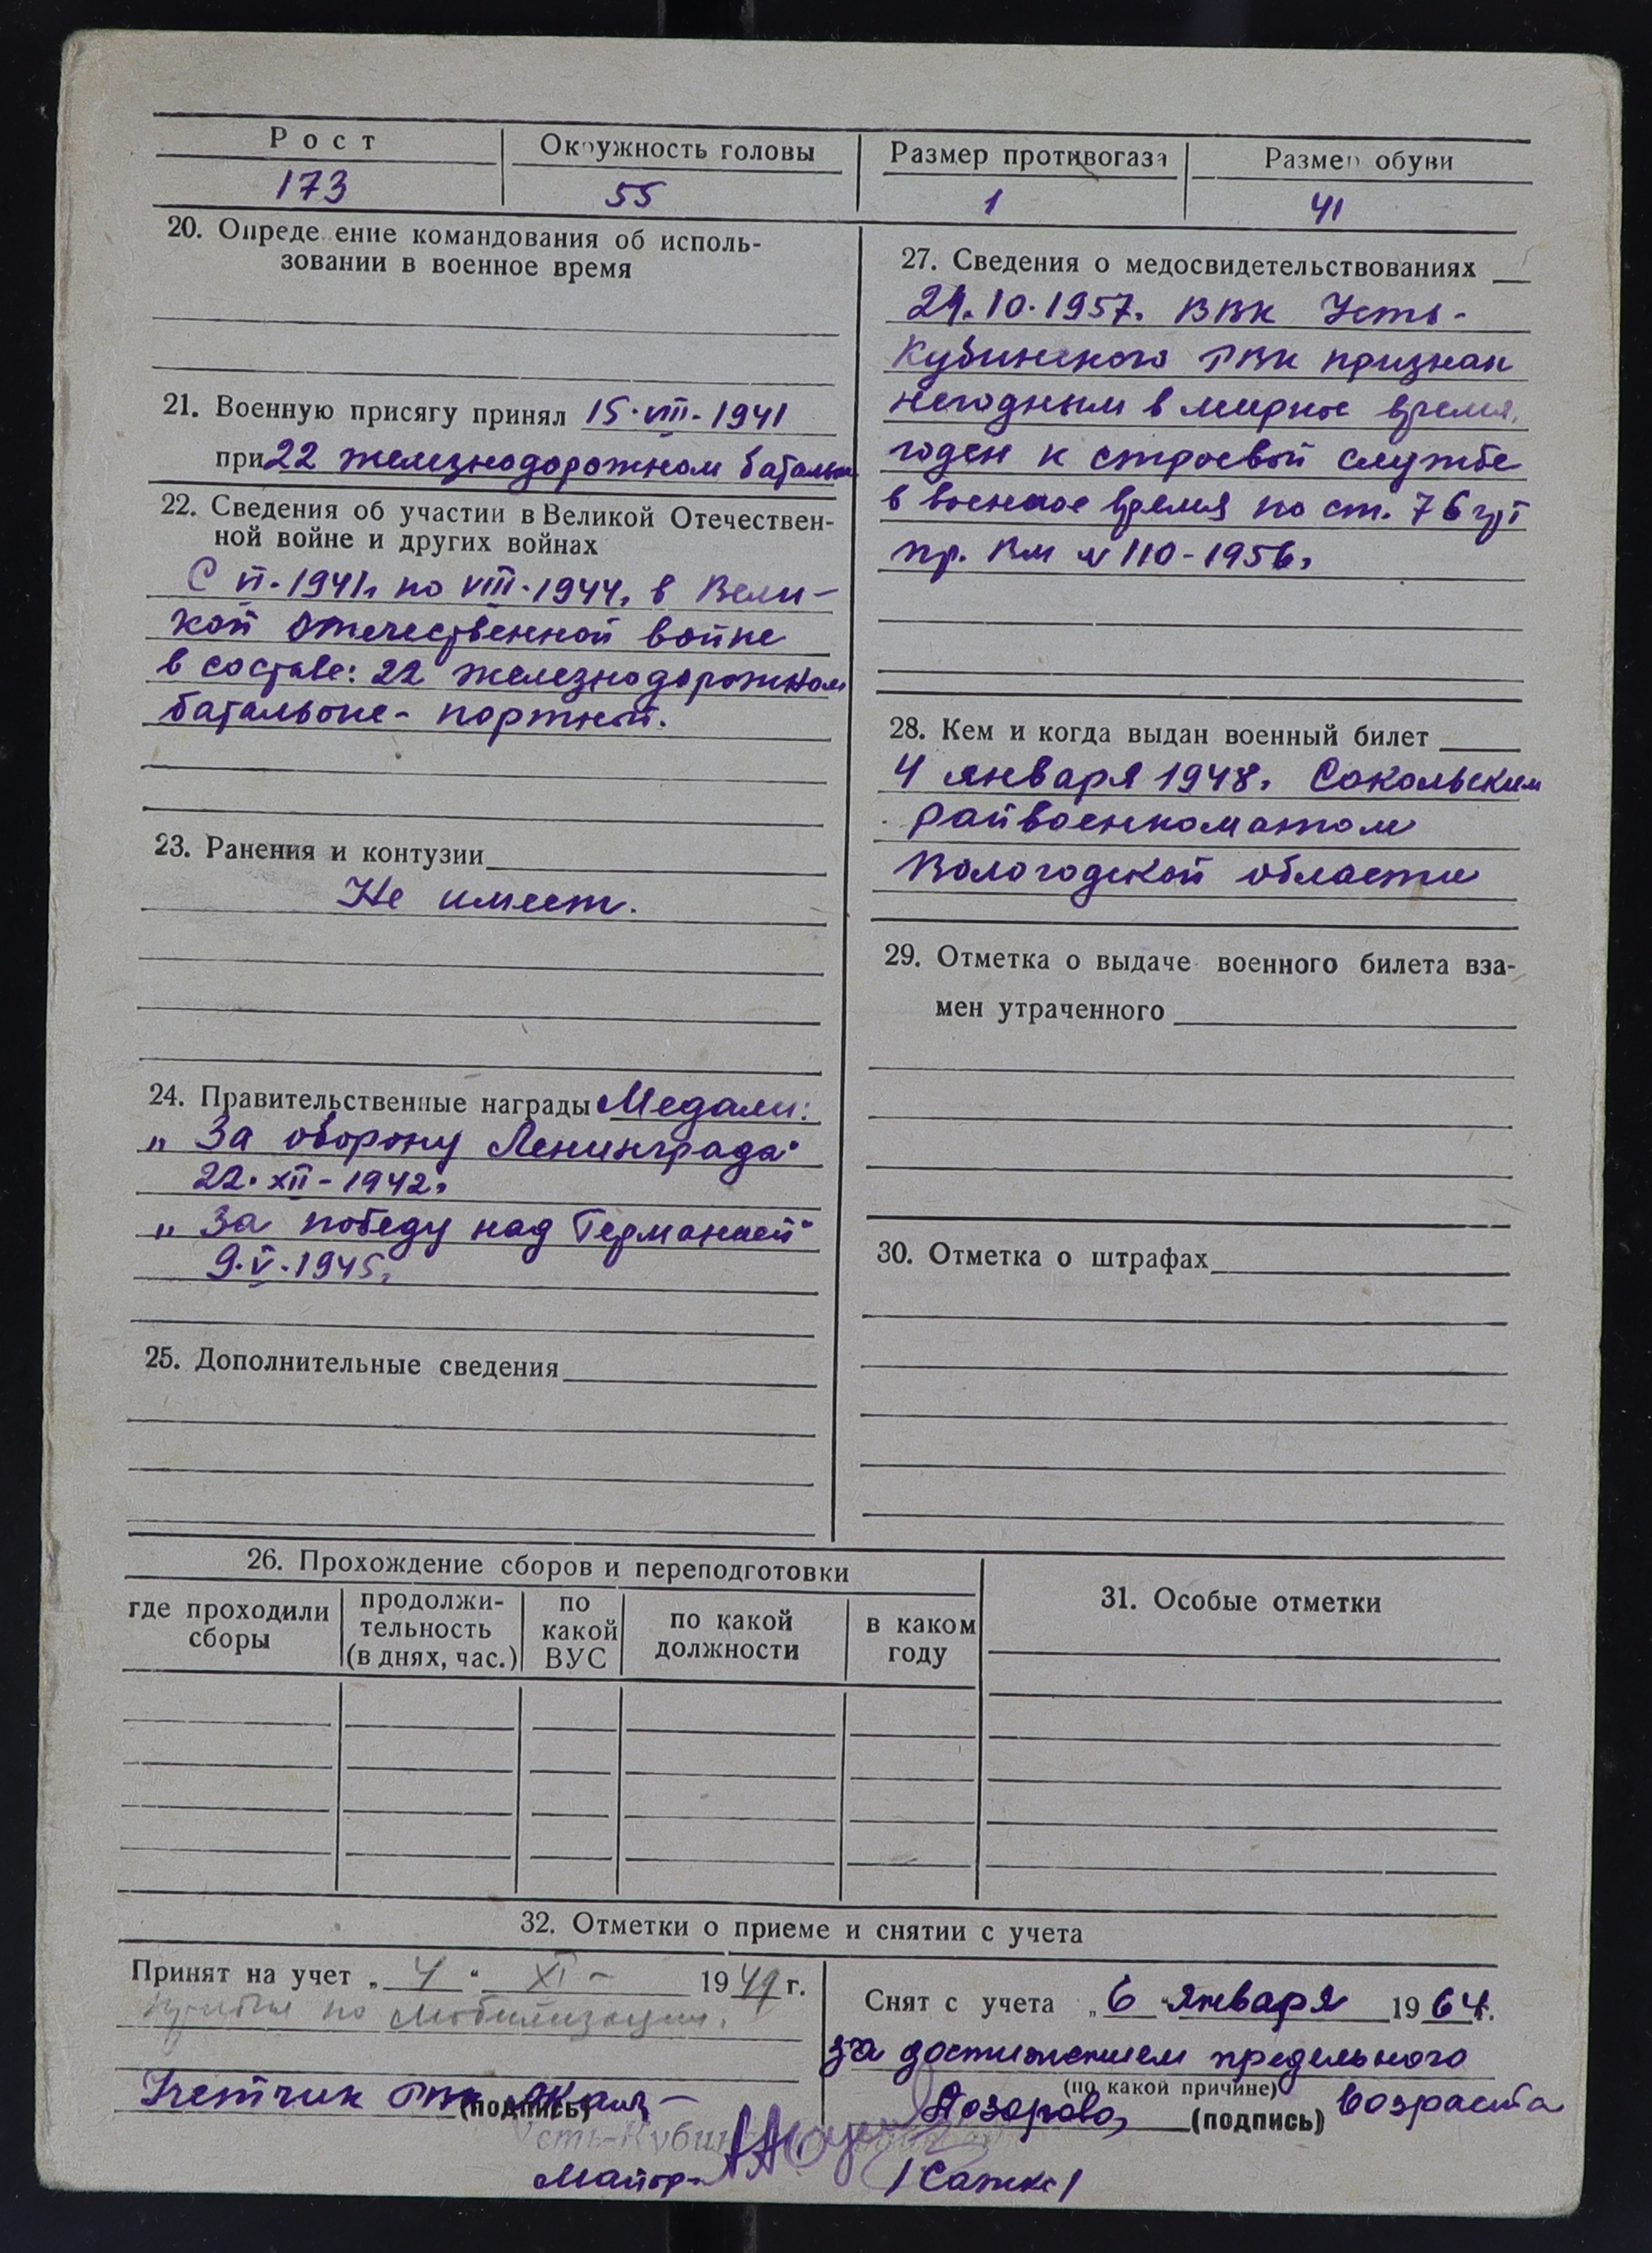 Рост
Окружность головы
Размер противогаза
Размер обуви
173
55
1
41
20. Определение командования об исполь-
зовании в военное время
21. Военную присягу принял 15·VIII-1941
при 22 железнодорожном батальоне
22. Сведения об участии в Великой Отечествен-
ной войне и других войнах
С VI-1941г по VIII-1944г в Вели-
кой Отечественной войне
в составе: 22 железнодорожном
батальоне - портной.
23. Ранения и контузии
Не имеет.
24. Правительственные награды Медали:
„За оборону Ленинграда"
22·XII-1942г
„За победу над Германией"
9·V·1945г
25. Дополнительные сведения
27. Сведения о медосвидетельствованиях
10·1957г ВВК Усть-
Кубинского РВК признан
негодным в мирное время,
годен к строевой службе
в военное время по ст. 76 гр I
пр. ВМ N 110-1956г
28. Кем и когда выдан военный билет
4 января 1948г Сокольским
райвоенкоматом
Вологодской области
29. Отметка о выдаче военного билета вза-
мен утраченного
30. Отметка о штрафах
26. Прохождение сборов и переподготовки
где проходили сборы
продолжи-тельность (в днях, час.)
по какой ВУС
по какой должности
в каком году
31. Особые отметки
32. Отметки о приеме и снятии с учета
Принят на учет „4" XI - 1949 г.
по мобилизации.
РВК
(подпись)
Усть-Кубин
Майор
Снят с учета „6" января 1964г.
за достижением предельного
(по какой причине)
возраста
(подпись)